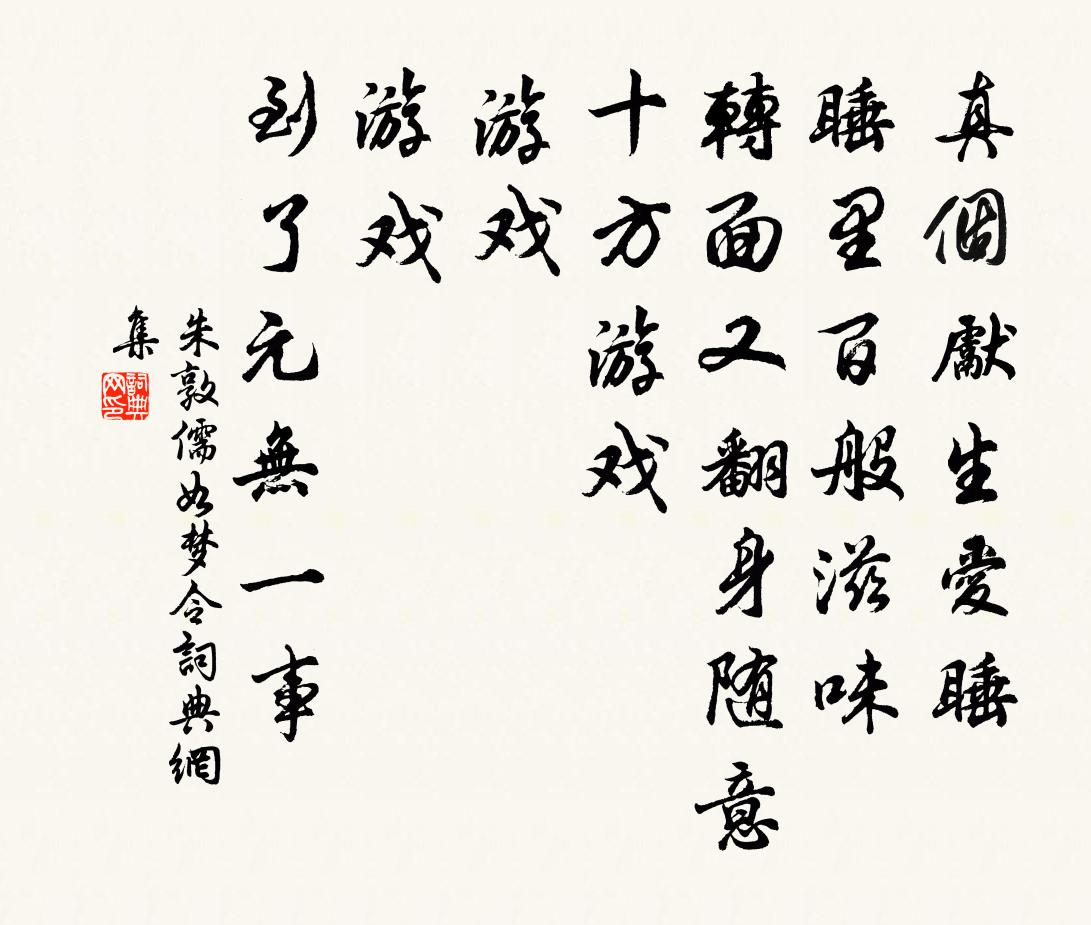 真個獻生愛睡
睡里百般滋味
轉面又翻身随意
十方游戏
游戏
游戏
到了元無一事
朱敦儒如梦令詞典網
集
詞典
网印